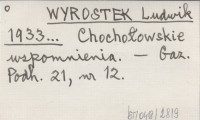 WYROSTEK Ludwik
1933... Chochołowskie
wspomnienia. — Gaz.
Podh. 21, nr 12.